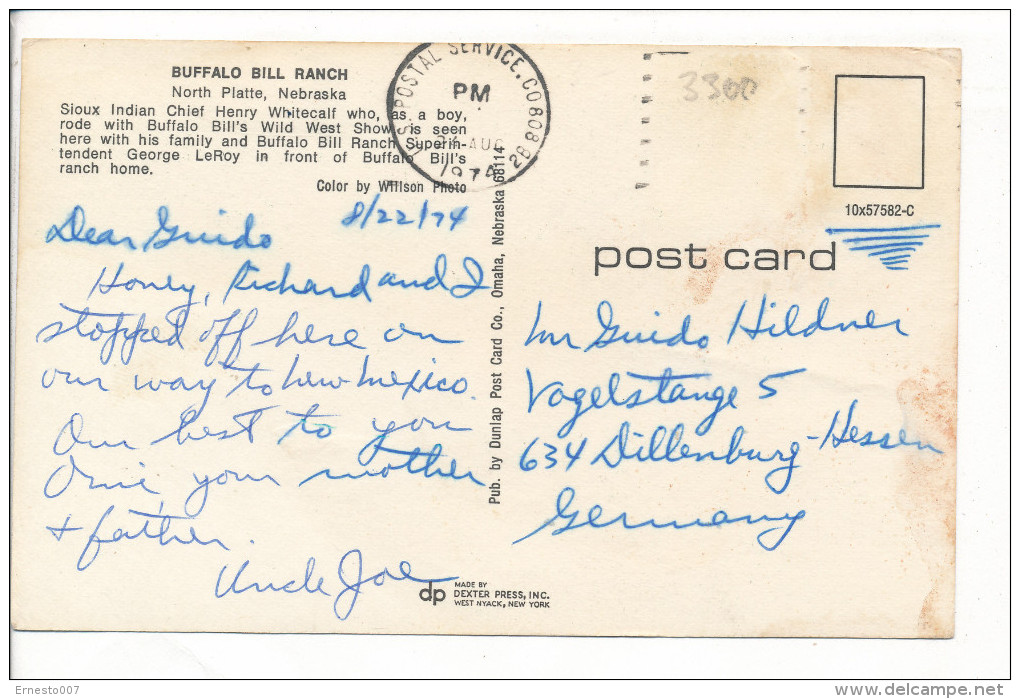 BUFFALO BILL RANCH
North Platte, Nebraska
Sioux Indian Chief Henry Whitecalf who, as a boy,
rode with Buffalo Bill's Wild West Show, is seen
here with his family and Buffalo Bill Ranch Superin-
tendent George LeRoy in front of Buffalo Bill's
ranch home.
Color by Willson Photo
8/22/74
Dear Guido
Honey, Richard and I
stopped off here on
our way to New Mexico.
Our best to you
your mother
+ father.
Uncle Joe
Pub. by Dunlap Post Card Co., Omaha, Nebraska 68114
U.S. POSTAL SERVICE, CO 808 82
PM
AUG
1974
3300
10x57582-C
post card
Mr Guido Hildner
Vogelstange 5
634 Dillenburg-Hessen
Germany
dp
MADE BY
DEXTER PRESS, INC.
WEST NYACK, NEW YORK
Ernesto007
delcampe.net